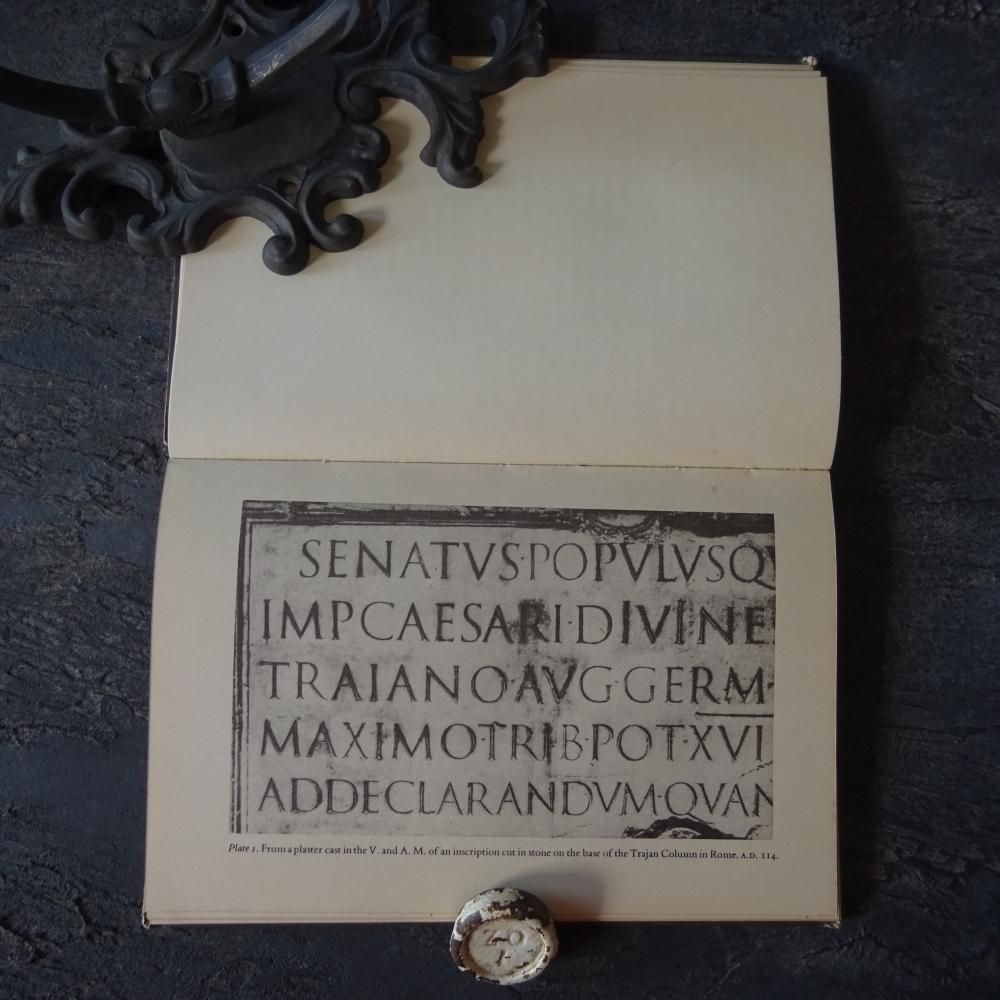 SENATVS·POPVLVSQV
IMP·CAESARI·DIVI·NE
TRAIANO·AVG·GERM·
MAXIMO·TRIB·POT·XVI
AD·DECLARANDVM·QVAN
Plate 1. From a plaster cast in the V. and A. M. of an inscription cut in stone on the base of the Trajan Column in Rome. A.D. 114.